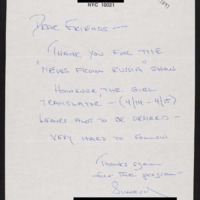 NYC 10021
DEAR FRIENDS —
THANK YOU FOR THE
"NEWS FROM RUSSIA" SHOW
HOWEVER, THE GIRL
TRANSLATOR — (4/14 - 4/15)
LEAVES ALOT TO BE DESIRED —
VERY HARD TO FOLLOW
THANKS again
for the program